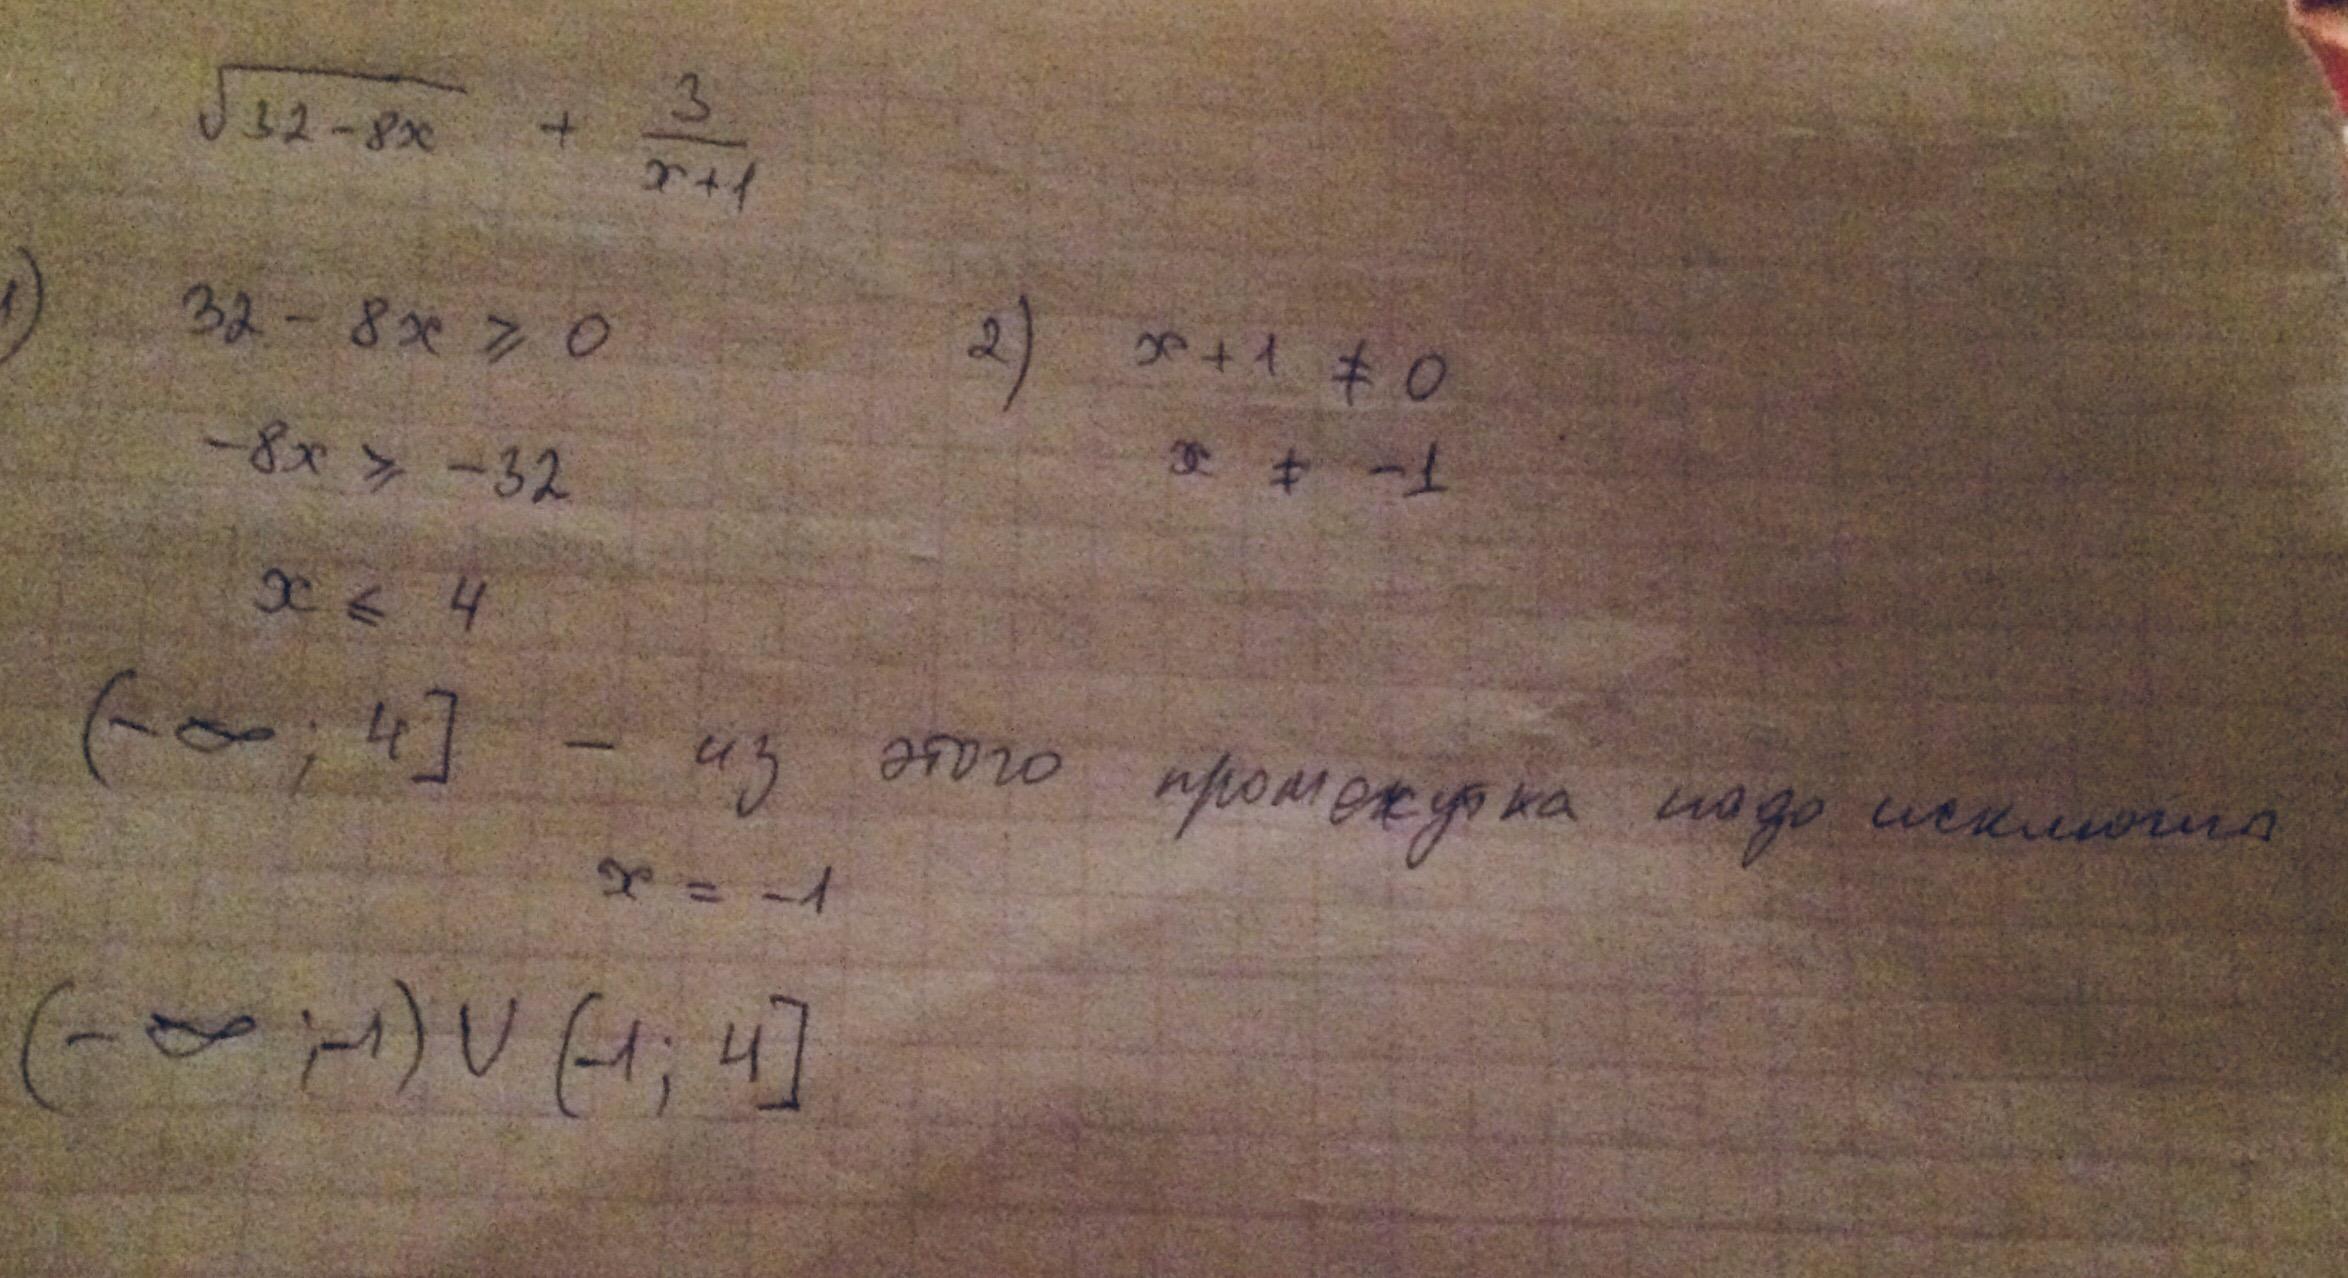 √32-8x + 3/(x+1)
1) 32 - 8x ⩾ 0
-8x ⩾ -32
x ⩽ 4
2) x+1 ≠ 0
x ≠ -1
(-∞; 4] - из этого промежутка надо исключить
x = -1
(-∞; -1) ∪ (-1; 4]